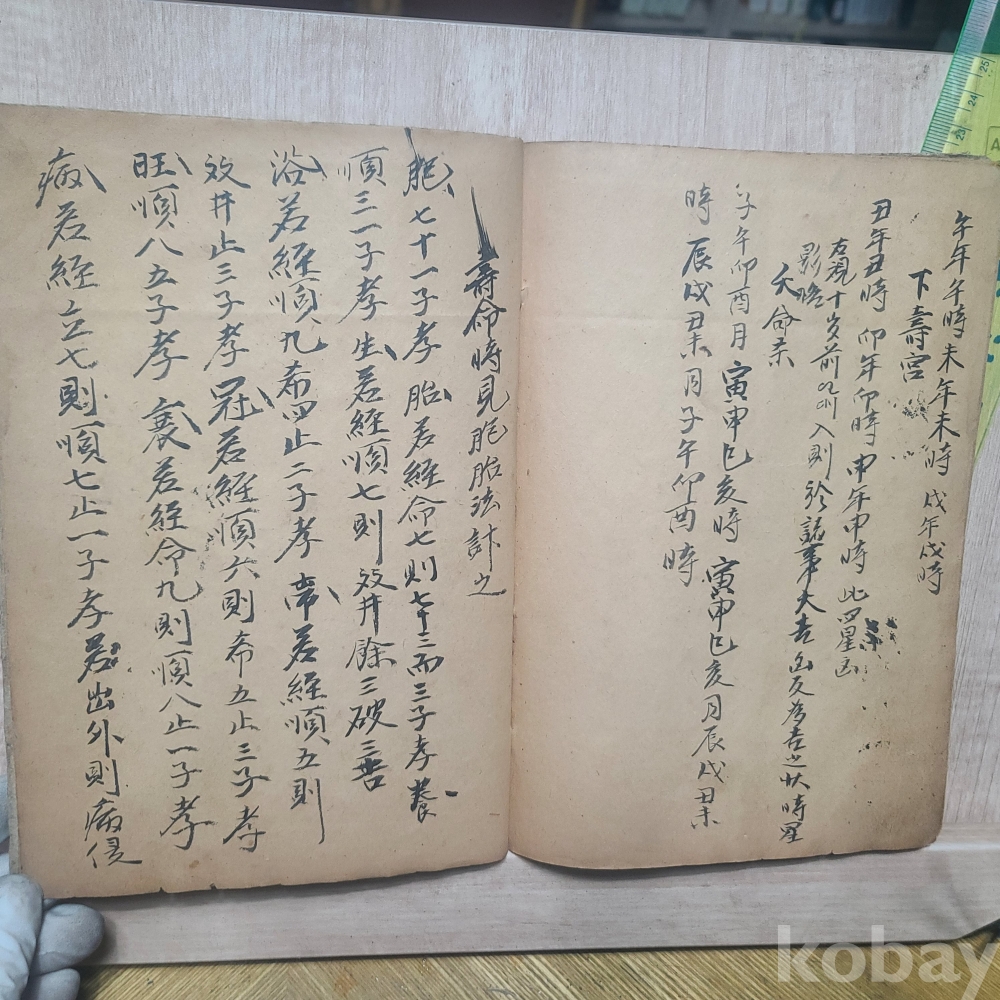 午年午時未年未時 戌年戌時
下壽宮
丑年丑時 卯年卯時 申年申時 此四星凶
右視十岁前 入則於諸事大吉凶反爲吉之狀時星
影略
夭命宗
子午卯酉月 寅申巳亥時 寅申巳亥月辰戌丑未
時 辰戌丑未月子午卯酉時
壽命時見胞胎法計之
胞七十一子孝 胎若經命七則七十三而三子孝 養
順三一子孝 生若經順七則效井除三破三善
浴若經順九希四止二子孝 帶若經順五則
效井止三子孝 冠若經順六則希五止三子孝
旺順八五子孝 衰若經命九則順八止一子孝
病若經立七則順七止一子孝若出外則病侵
25
24
23
kobay